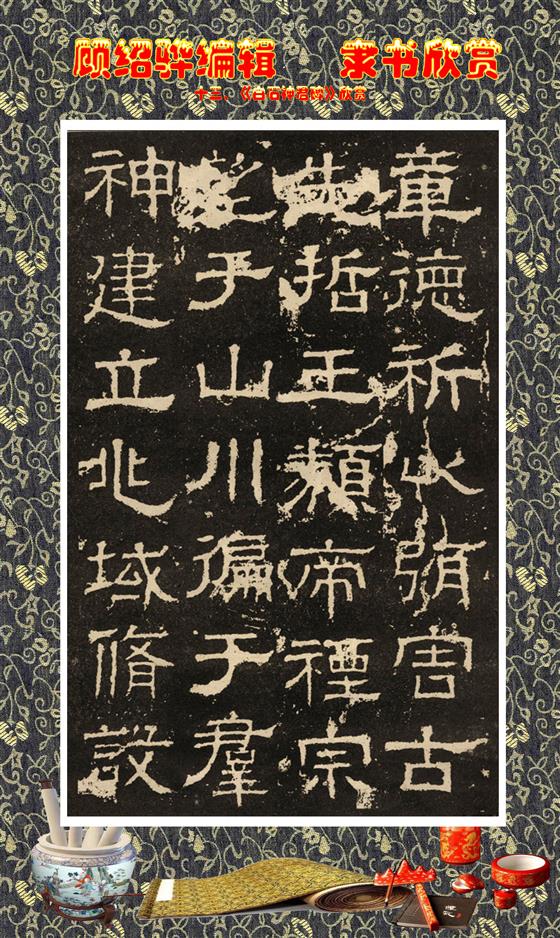 顾绍骅编辑 隶书欣赏
十三、《白石神君碑》欣赏
章德祈以弭害古
先哲王類帝禋宗
望于山川徧于羣
神建立兆域脩設